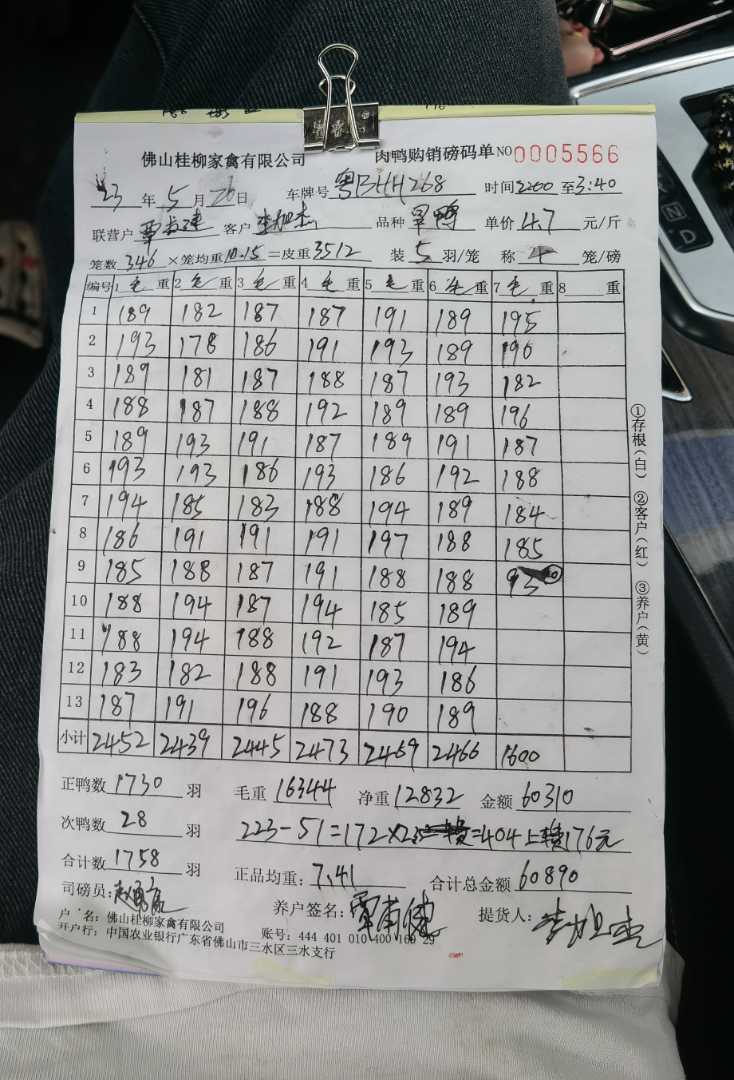 佛山桂柳家禽有限公司 肉鸭购销磅码单 NO 0005566
23年5月26日 车牌号 粤BHH268 时间2200至3:40
联营户 客户 品种 旱鸭 单价4.7元/斤
笼数346×笼均重10.15=皮重3512 装5羽/笼 称4笼/磅
编号 1毛重 2毛重 3毛重 4毛重 5毛重 6毛重 7毛重 8重
1 189 182 187 187 191 189 195
2 193 178 186 191 193 189 190
3 189 181 187 188 187 193 182
4 188 187 188 192 189 189 196
5 189 193 191 187 189 191 187
6 193 193 186 193 186 192 188
7 194 185 183 188 194 189 184
8 186 191 191 191 197 188 185
9 185 188 187 191 188 188 93
10 188 194 187 194 185 189
11 188 194 188 192 187 194
12 183 182 188 191 193 186
13 187 191 196 188 190 189
小计 2452 2439 2445 2473 2469 2466 1600
正鸭数1730羽 毛重16344 净重12832 金额60310
次鸭数28羽 223-51=172×2 =404 176元
合计数1758羽 正品均重:7.41 合计总金额60890
司磅员: 养户签名:覃南健 提货人:
户名:佛山桂柳家禽有限公司 账号:444 401 010 400 169 29
开户行:中国农业银行广东省佛山市三水区三水支行
①存根(白) ②客户(红) ③养户(黄)
N
D